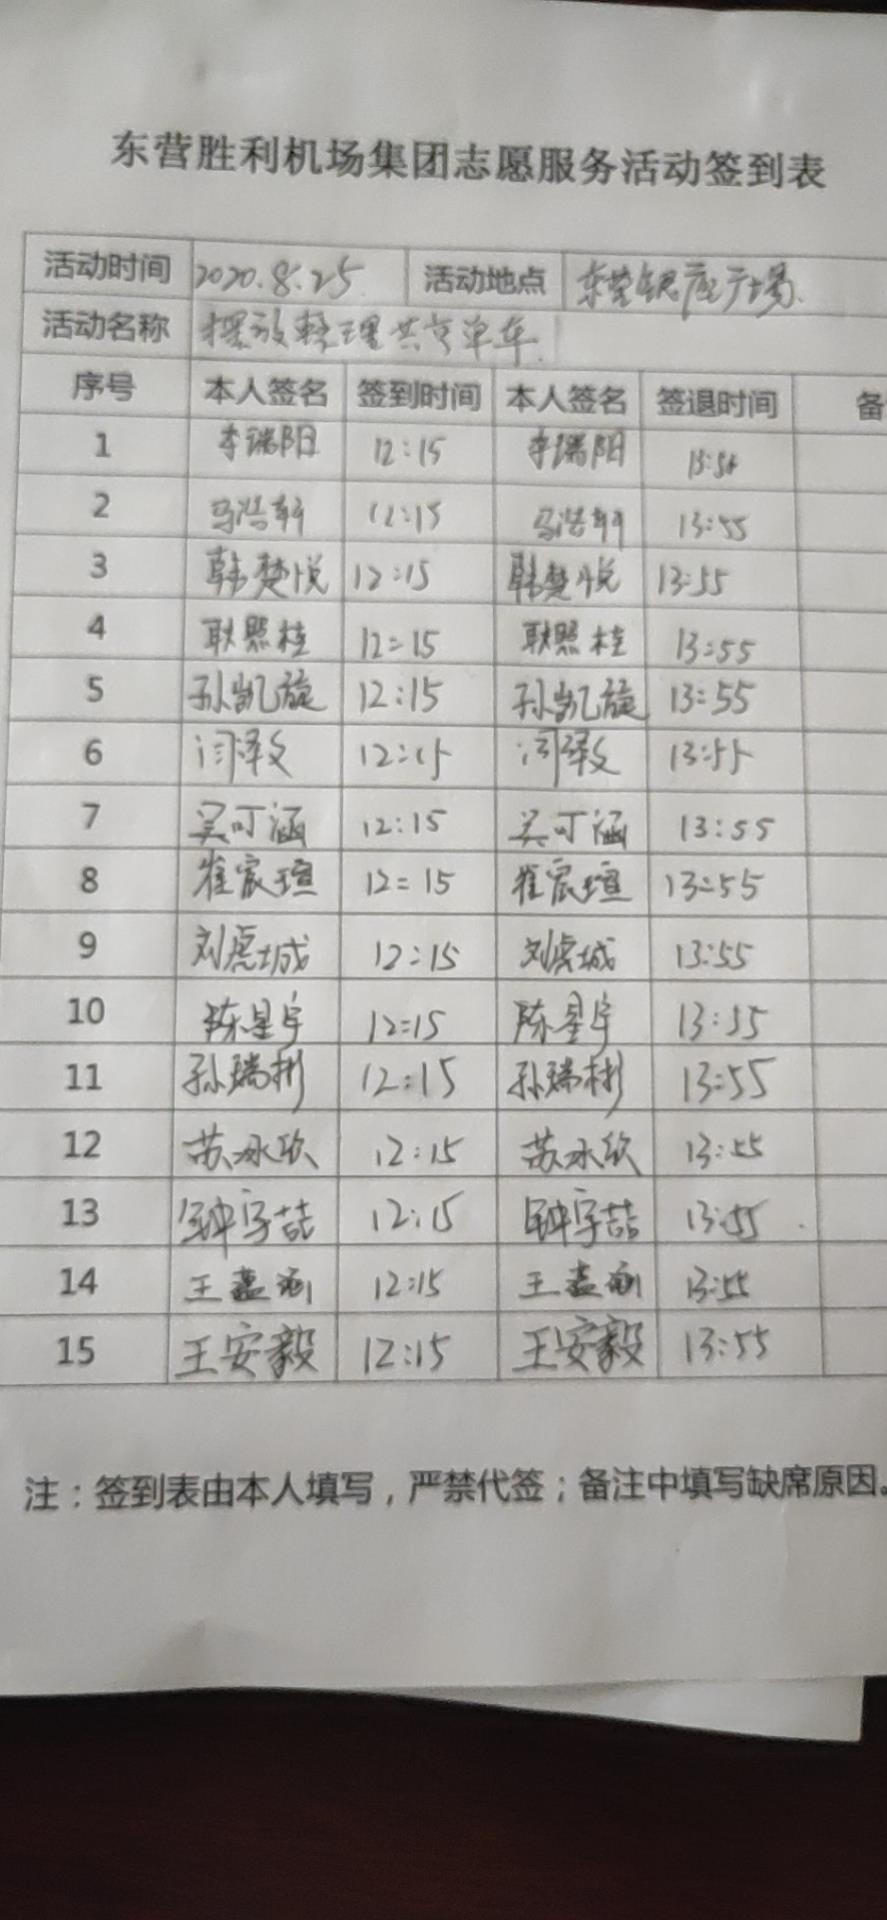 东营胜利机场集团志愿服务活动签到表
活动时间 2020.8.25 活动地点 东营银座广场
活动名称 摆放整理共享单车
序号 本人签名 签到时间 本人签名 签退时间 备
1 李瑞阳 12:15 李瑞阳
2 马浩轩 12:15 马浩轩 13:55
3 韩楚悦 12:15 韩楚悦 13:55
4 耿照桂 12:15 耿照桂 13:55
5 孙凯旋 12:15 孙凯旋 13:55
6 闫泽文 12:15 闫泽文 13:55
7 吴可涵 12:15 吴可涵 13:55
8 崔宸瑄 12:15 崔宸瑄 13:55
9 刘虎城 12:15 刘虎城 13:55
10 陈星宇 12:15 陈星宇 13:55
11 孙瑞彬 12:15 孙瑞彬 13:55
12 苏冰欣 12:15 苏冰欣 13:55
13 钟宇喆 12:15 钟宇喆 13:55
14 王 12:15 王 13:55
15 王安毅 12:15 王安毅 13:55
注：签到表由本人填写，严禁代签；备注中填写缺席原因。